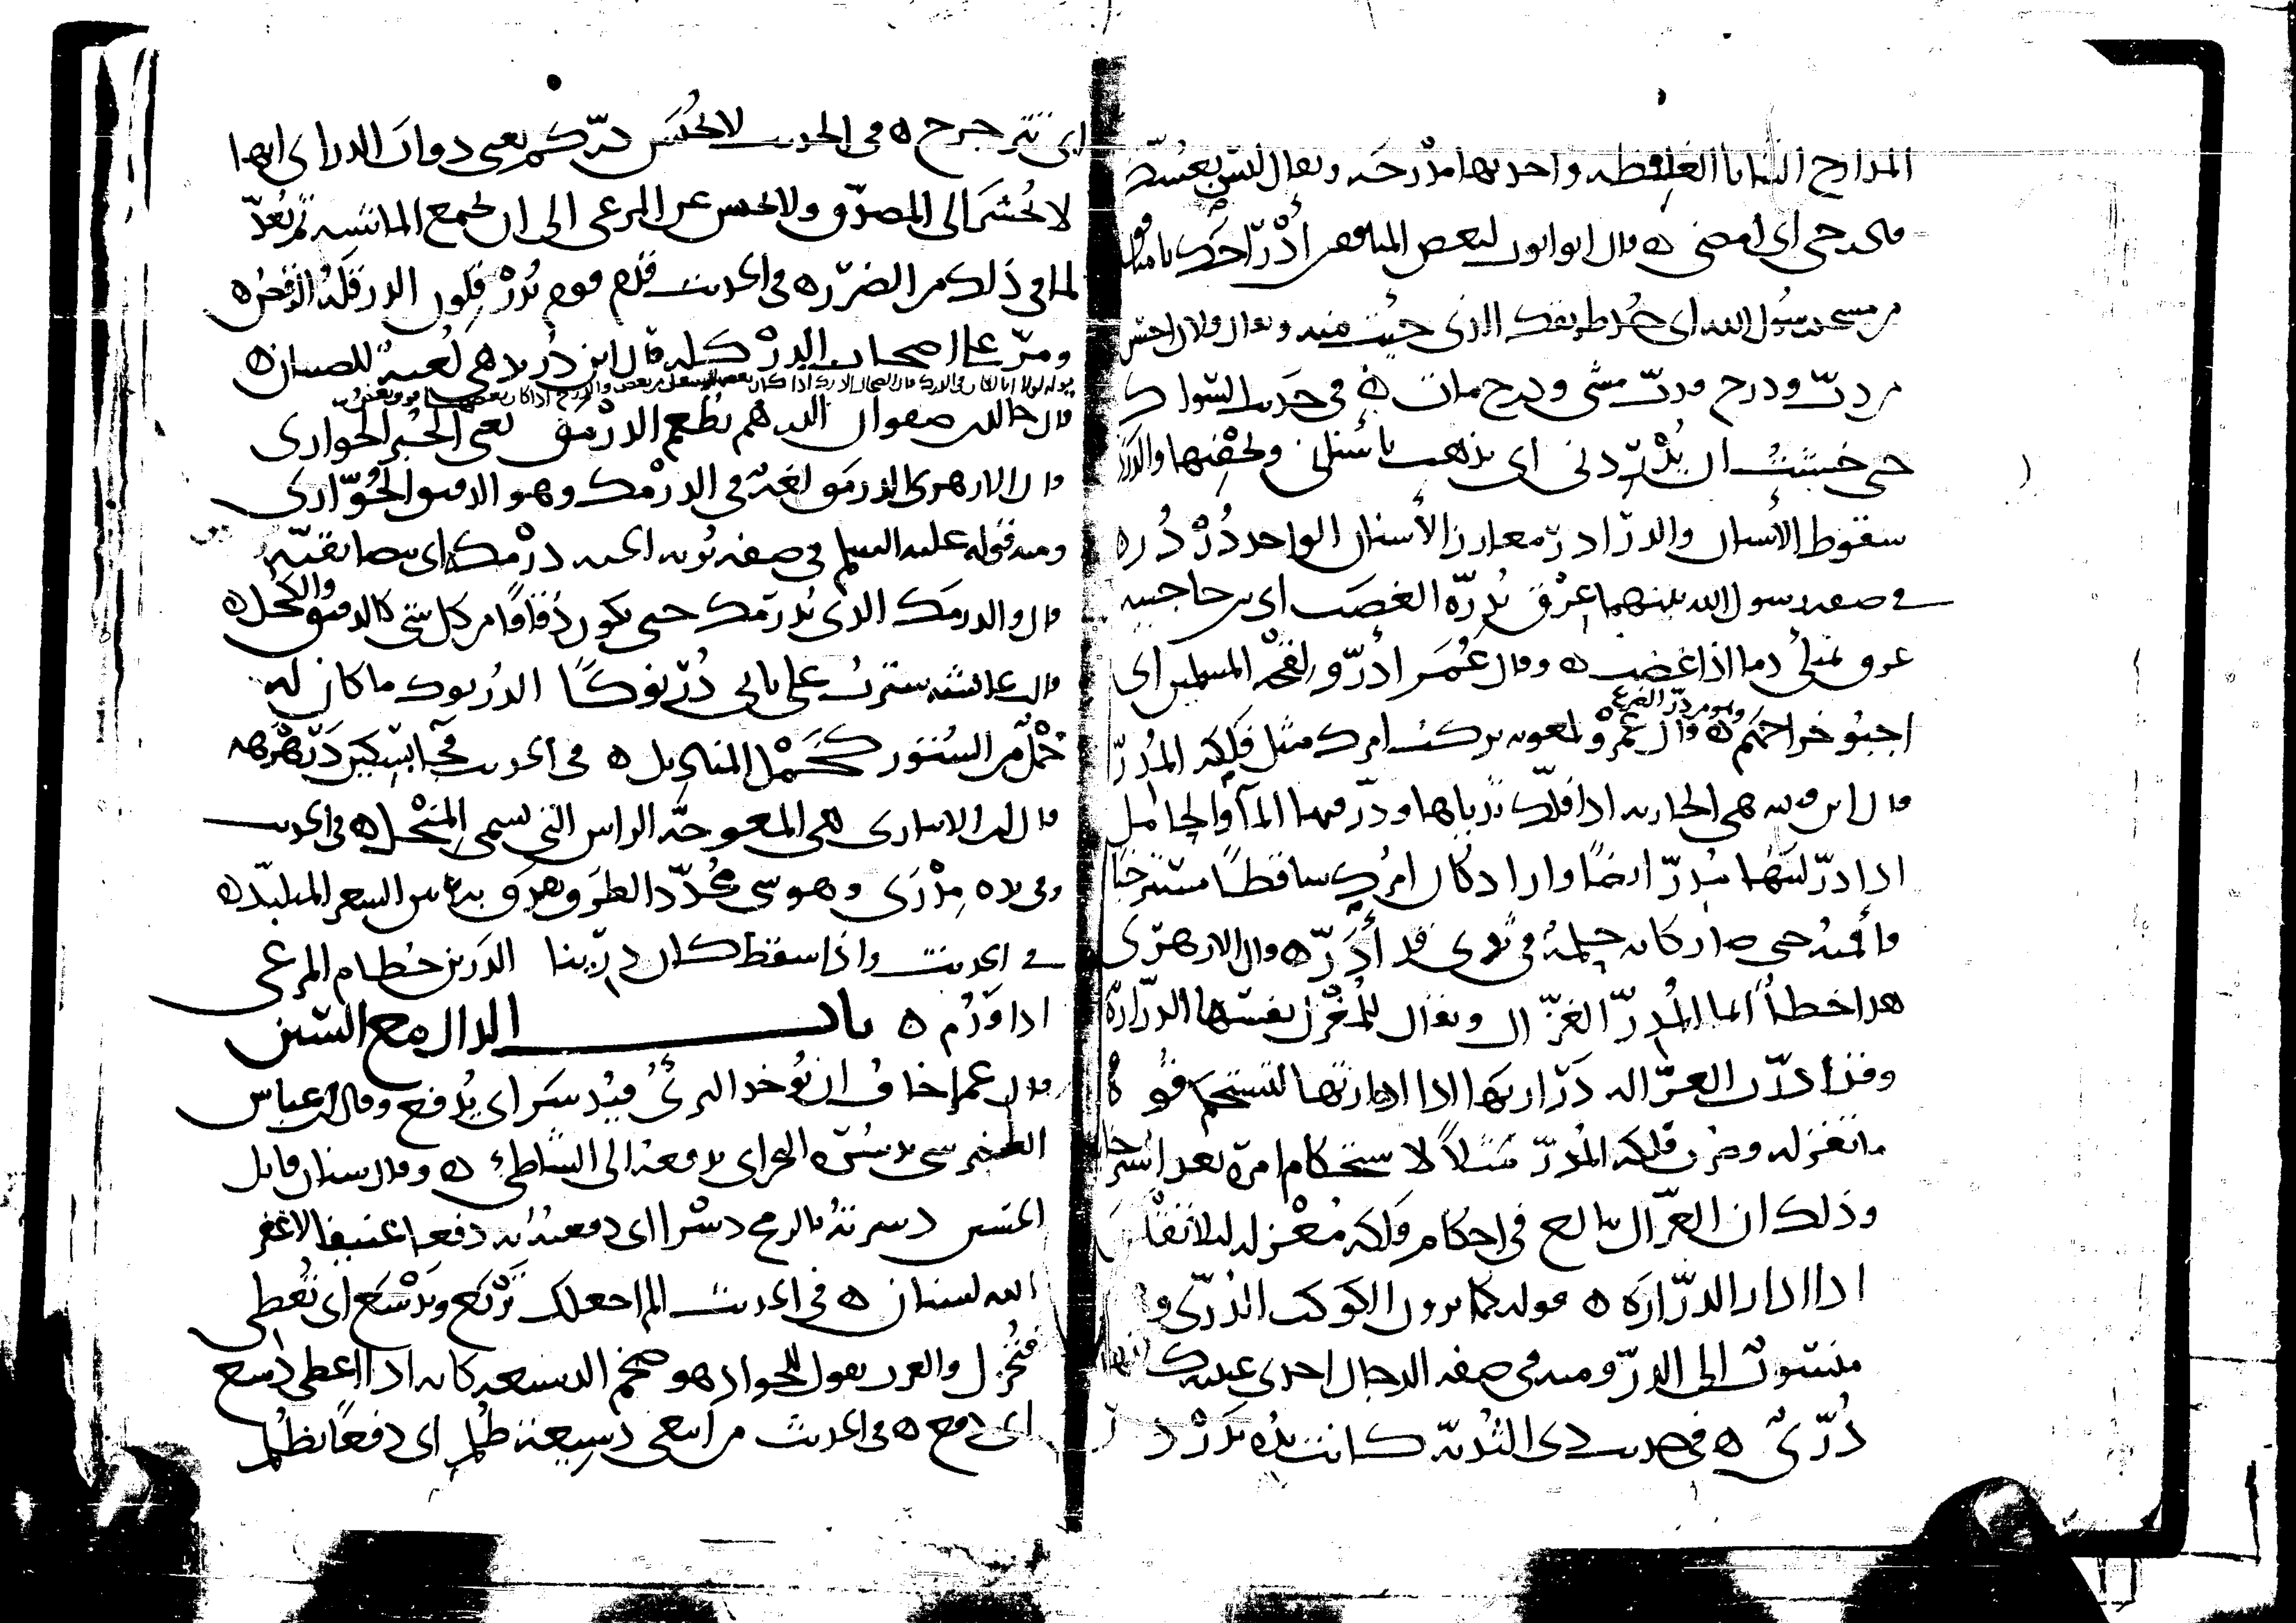 المدارج الثنايا الغلاظ واحدتها مدرجة ويقال للشئ بعينه
مدرجي اي امضي ه قال ابو ايوب لبعض المنافقين أدراجك يا منافق
من مسجد رسول الله اي خذ طريقك الذي جئت منه ويقال فلان احسن
من دب ودرج فدب مشى ودرج مات ه في حديث السواك
حتى خشيت ان يُدْرِدني اي يذهب باسناني ويحفيها والدرد
سقوط الأسنان والدرادر مغارز الأسنان الواحد دُرْدُر ه
في صفة رسول الله بينهما عِرْق يُدِرّه الغضب اي بين حاجبيه
عرق يمتلئ دما اذا غضب ه وقال عُمَر أدِرّوا لقحة المسلمين اي
وهو من درّ الضرع
اجبُو خراجهم ه قال عَمْرو لمعوية تركت امرك مثل فلكة المُدِرّ
قال ابن قتيبة هي الجارية اذا فلك ثدياها ودر فيهما المآ والحامل
اذا درّ لبنها مُدِرّ ايضًا واراد كان امرك ساقطًا مسترخيًا
فأقمته حتى صار كانه حلمة في ثدي قد أدَرّ ه وقال الازهري
هذا خطأ انما المُدِرّ الغزّال ويقال للمغزل نفسها الدرّارة
وقد أدرّت الغزّالة درّارتها اذا ادارتها لتستحكم قُوة
ما تغزله وضرب فلكة المُدِرّ مثلًا لاستحكام امره بعد استرخا
وذلك ان الغزّال يبالغ في احكام فلكة مغزله ليلا تقلق
اذا ادار الدرّارة ه قوله كما ترون الكوكب الدُرّي
منسوب الى الدرّ ومنه في صفة الدجال احدى عينيه كانها
دُرّيّ ه في حديث ذي الثُديّة كانت يده تدَرْدَر
اي تترجرج ه في الحديث لا يُحْبَس دَرّكم يعني ذوات الدر اي انها
لا تُحْشَر الى المصدّق ولا تحبس عن المرعى الى ان تجمع الماشية ثم تُعَدّ
لما في ذلك من الضرر ه في الحديث قدم قوم يُدَرْقِلون الدرقلة الرقص ه
ومرّ على اصحاب الدركلة قال ابن دريد هي لعبة للصبيان ه
قال خالد بن صفوان الدرهم يُطْعِم الدَرْمَق يعني الخبز الحوارى
قال الازهري الدرمق لغة في الدرمك وهو الدقيق الحُوّارى
ومنه قوله عليه السلم في صفة تربة الجنة درمكة اي بيضا نقية
قال والدرمك الذي يُدرمك حتى يكون دُقاقًا من كل شي كالدقيق والكحل ه
قالت عائشة سترت على بابي دُرْنوكًا الدرنوك ما كان له
خَمْل من الستور كخَمْل المناديل ه في الحديث فجآ بسكين دَرَهْرهة
قال ابن الانباري هي المعوجة الراس التي تسمى المنجل ه في الحديث
وفي يده مِدْرًى وهو شي محدّد الطرف يفرق به بين الشعر المتلبد ه
في الحديث واذا سقط كان درينا الدرين حطام المرعى
اذا قدُم ه باب الدال مع السين
قال عمر اخاف ان يُوخذ البرئُ فيُدسَر اي يُدفع وقال ابن عباس
العنبر شي يدسُره البحر اي يدفعه الى الشاطئ ه وقال سنان قاتل
الحسين دسرته بالرمح دسرا اي دفعته به دفعا عنيفا لا غفر
الله لسنان ه في الحديث الم اجعلك تَرْبَع وتَدْسَع اي تُعطي
فتُجْزل والعرب تقول للجواد هو ضخم الدسيعة كانه اذا اعطى دسع
اي دفع ه في الحديث من ابتغى دَسِيعة ظُلْم اي دفعًا بظلم